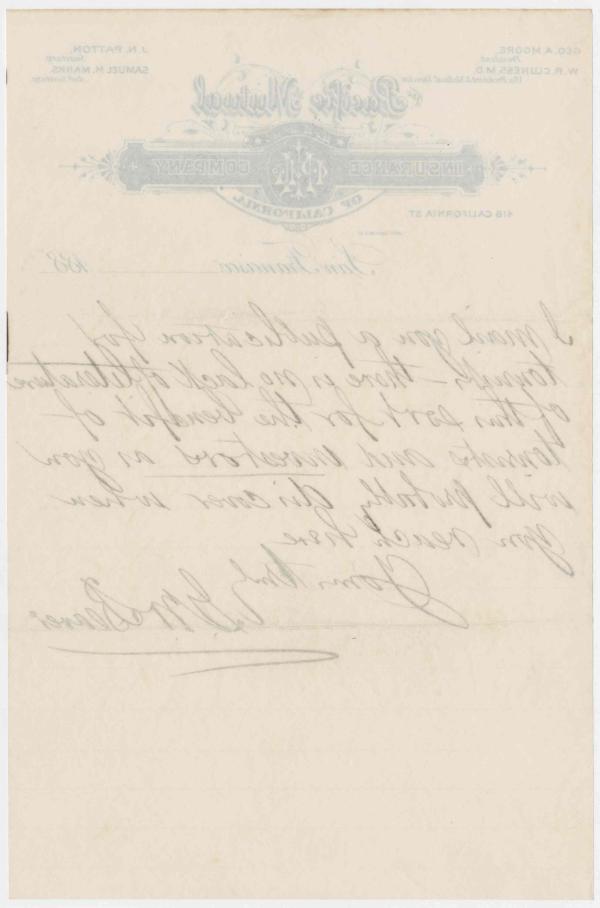 GEO. A. MOORE,
President
W. R. CLUNESS M.D.
Vice President & Medical Director
J. N. PATTON,
Secretary
SAMUEL M. MARKS,
Asst Secretary
The Pacific Mutual
LIFE
INSURANCE COMPANY
PML
OF CALIFORNIA.
418 CALIFORNIA ST.
San Francisco 188
I mail you a publication for
tourists - there is no lack of literature
of this sort for the benefit of
tourists and investors as you
will probably discover when
you reach here
Yours truly
Beaver